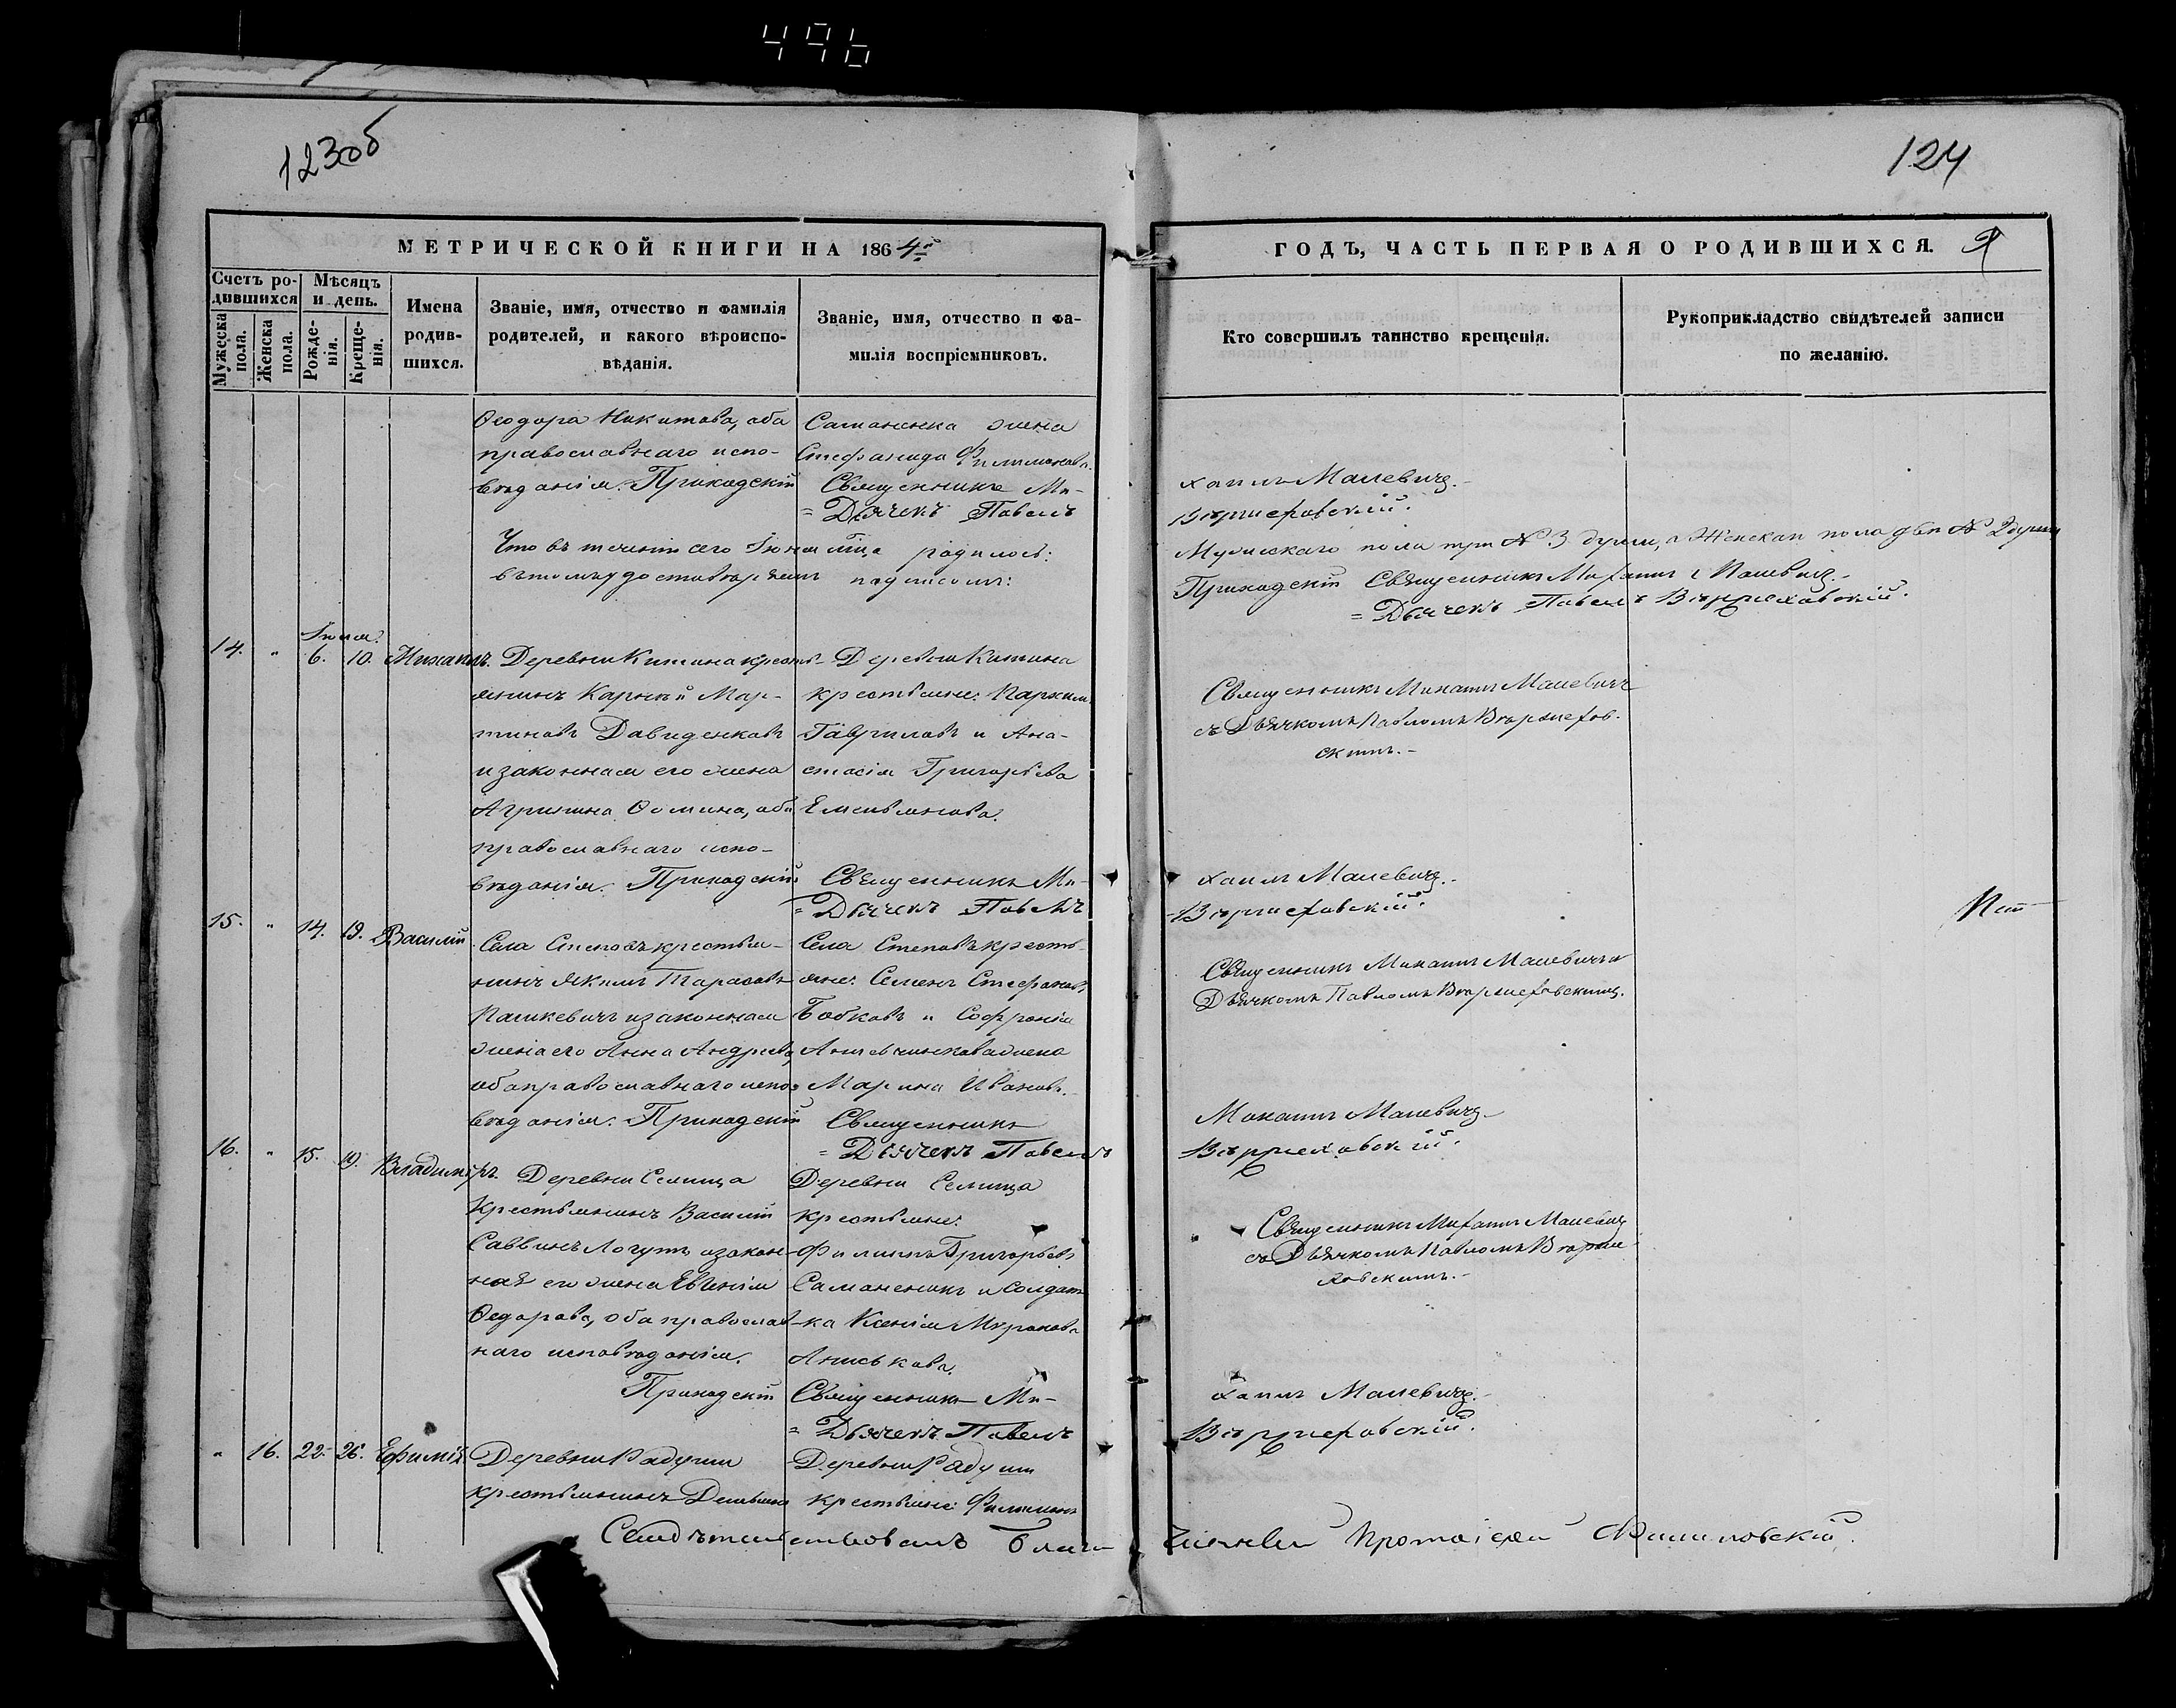 496
123об
124
МЕТРИЧЕСКОЙ КНИГИ НА 1864й
ГОДЪ, ЧАСТЬ ПЕРВАЯ О РОДИВШИХСЯ.
Счетъ родившихся
Мѣсяцъ и день.
Мужеска пола.
Женска пола.
Рожденія.
Крещенія.
Имена
родив-
шихся.
Званіе, имя, отчество и фамилія
родителей, и какого вѣроиспо-
вѣданія.
Званіе, имя, отчество и фа-
милія воспріемниковъ.
Кто совершилъ таинство крещенія.
Рукоприкладство свидѣтелей записи
по желанію.
Ѳеодора Никитова, оба
православнаго испо-
вѣданія. Приходскій
Саманенка жена
Стефанида Филимонова.
Священникъ Ми-
= Дьячекъ Павелъ
хаилъ Малевичъ.
Что въ теченіи сего Іюня мѣсяца родилось:
Мужескаго пола три № 3 души, а Женскаго пола двѣ № 2 души
въ томъ удостовѣряемъ подписомъ:
Приходскій Священникъ Михаилъ Малевичъ.
= Дьячекъ Павелъ
14. " 6. 10. Михаилъ.
Деревни Китина кресть-
янинъ Карнѣй Мар-
тиновъ Давиденковъ
и законная его жена
Агрипина Ѳомина, оба
православнаго испо-
вѣданія. Приходскій
Деревни Китина
крестьяне: Пархим.
Гавриловъ и Ана-
стасія Григорьева
Емельянова.
Священникъ Ми-
= Дьячекъ Павелъ
Священникъ Михаилъ Малевичъ
съ Дьячкомъ Павломъ
скимъ.
хаилъ Малевичъ.
15. " 14. 19. Василій
Села Степовъ крестья-
нинъ Якимъ Тарасовъ
Пашкевичъ и законная
жена его Анна Андреева,
оба православнаго испо-
вѣданія. Приходскій
Села Степовъ кресть-
яне: Семенъ Стефановъ
Бобковъ и Софронія
жена
Марина Иванова.
Священникъ
= Дьячекъ Павелъ
Священникъ Михаилъ Малевичъ и
Дьячкомъ Павломъ
Михаилъ Малевичъ
16. " 15. 19. Владиміръ.
Деревни Селища
Крестьянинъ Василій
Саввинъ Логутъ и закон-
ная его жена Евгенія
Ѳедорова, оба православ-
наго исповѣданія.
Приходскій
Деревни Селища
крестьяне:
Филипъ Григорьевъ
Саманенкъ и солдат-
ка Ксенія Миронова
Аниськова.
Священникъ Ми-
= Дьячекъ Павелъ
Священникъ Михаилъ Малевичъ
съ Дьячкомъ Павломъ
ховскимъ.
хаилъ Малевичъ.
" 16. 22. 26. Ефимія
Деревни Радучи
крестьянинъ Демьянъ
Деревни Радучи
крестьяне: Филимонъ
Свидѣтельствовалъ Благочинный Протоіерей